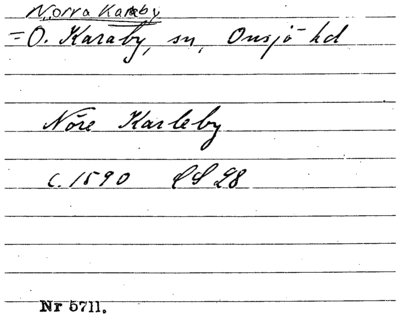 Norra Karaby
=Ö. Karaby, sn, Onsjö hd
Nöre Karleby
c. 1590 LS 28
Nr 5711.